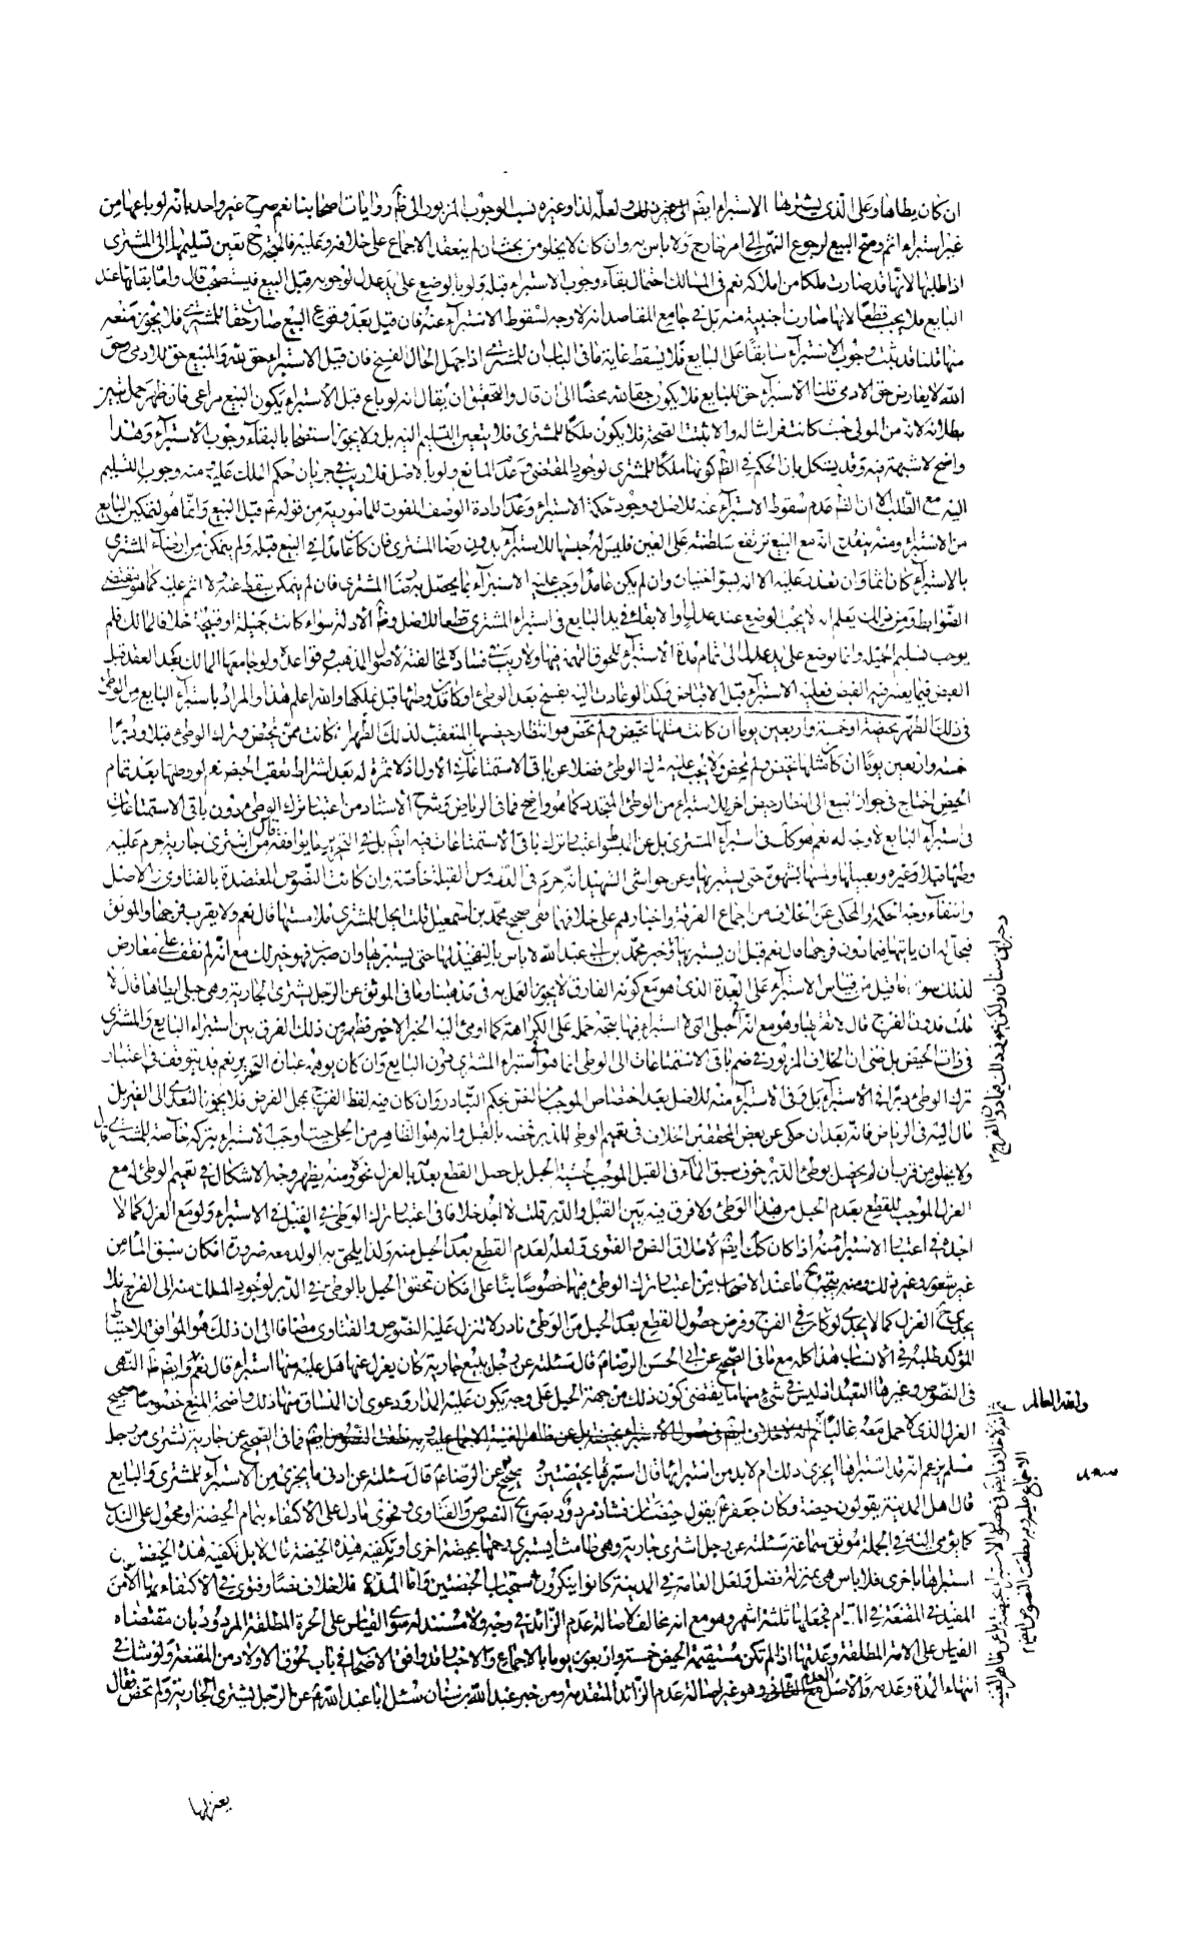 ان كان يطاها وعلى الذى يشتريها الاستبراء ايضم الى غير ذلك ولعله لذا وغيره نسب الوجوب المزبور الى ظم روايات اصحابنا نعم صرح غير واحد بانه لو باعها من
غير استبراء اثم وصح البيع لرجوع النهى الى امر خارج ولا باس به وان كان لا يخلو من بحث ان لم ينعقد الاجماع على خلافه وعليه فالمتجه ح تعين تسليمها الى المشترى
اذا طلبها لانها قد صارت ملكا من املاكه نعم فى المسالك احتمال بقاء وجوب الاستبراء قبله ولو بالوضع على يد عدل لوجوبه قبل البيع فيستصحب قال واما بقائها عند
البايع فلا يجب قطعا لانها صارت اجنبية منه بل فى جامع المقاصد انه لا وجه لسقوط الاستبراء عنه فان قيل بعد وقوع البيع صارت حقا للمشترى فلا يجوز منعه
منها قلنا قد ثبت وجوب الاستبراء سابقا على البايع فلا يسقط غاية ما فى الباب ان للمشترى اذا جهل الحال الفسخ فان قيل الاستبراء حق لله والمبيع حق للادمى وحق
الله لا يعارض حق الادمى قلنا الاستبراء حق للبايع فلا يكون حقا لله محضا الى ان قال والتحقيق ان يقال انه لو باع قبل الاستبراء يكون البيع مراعى فان ظهر حمل تبين
بطلانه لانه من المولى حيث كانت فراشا له والا تبينت الصحة فلا يكون ملكا للمشترى فلا يتعين التسليم اليه بل ولا يجوز استصحابا لبقاء وجوب الاستبراء وهذا
واضح لا شبهة فيه وقد يشكل بان الحكم فى الظم كونها ملكا للمشترى لوجود المقتضى وعدم المانع ولو بالاصل فلا ريب فى جريان حكم الملك عليه منه وجوب التسليم
اليه مع الطلب الا ان لقم عدم سقوط الاستبراء عنه للاصل ووجود حكمة الاستبراء وعدم ارادة الوصف المفوت للمامور به من قوله عم قبل البيع وانما هو لتمكين البايع
من الاستبراء ومنه ينقدح انه مع البيع ترتفع سلطنته على العين فليس له حبسها للاستبراء بدون رضا المشترى فان كان عامدا فى البيع قبله ولم يتمكن من ارضاء المشترى
بالاستبراء كان اثما وان تعذر عليه الا انه بسوء اختياره وان لم يكن عامدا وجب عليه الاستبراء بما يحصل به رضا المشترى فان لم يتمكن سقط عنه ولا اثم عليه كما هو مقتضى
الضوابط ومن ذلك يعلم انه لا يجب الوضع عند عدل ولا بقائها فى يد البايع فى استبراء المشترى قطعا للاصل وظم الادلة سواء كانت جميلة او قبيحة خلافا لمالك فلم
يوجب تسليم الجميلة وانما توضع على يد عدل الى تمام مدة الاستبراء للحوق التهمة فيها ولا ريب فى فساده لمخالفته لاصول المذهب وقواعده ولو جامعها المالك بعد العقد قبل
القبض فيما يعتبر فيه القبض فعليه الاستبراء قبل الاقباض وكذا لو عادت اليه بفسخ بعد الوطئ او كان قد وطئها قبل تملكها والله اعلم هذا والمراد باستبراء البايع من الوطى
فى ذلك الطهر بحيضة او خمسة واربعين يوما ان كانت مثلها تحيض ولم تحض هو انتظار حيضها المتعقب لذلك الطهر ان كانت ممن تحيض وترك الوطئ قبلا ودبرا
خمسة واربعين يوما ان كان مثلها تحيض ولم تحض ولا يجب عليه ترك الوطئ فضلا عن باقى الاستمتاعات فى الاول اذ لا ثمرة له بعد اشتراط تعقب الحيض نعم لو وطئها بعد تمام
الحيض احتاج فى جواز البيع الى انتظار حيض اخر للاستبراء من الوطئ المتجدد كما هو واضح فما فى الرياض وشرح الاستاد من اعتبار ترك الوطى دون باقى الاستمتاعات
فى استبراء البايع لا وجه له نعم هو كك فى استبراء المشترى بل عن المبسوط اعتبار ترك باقى الاستمتاعات فيه ايضم بل فى التحرير ما يوافقه قال من اشترى جارية حرم عليه
وطئها قبلا وغيره وتقبيلها ولمسها بشهوة حتى يستبريها وعن حواشى الشهيد انه حرم فى الفردوس القبلة خاصة وان كانت النصوص المعتضدة بالفتاوى والاصل
وانتفاء وجه الحكمة والمحكى عن الخلاف من اجماع الفرقة واخبارهم على خلافها ففى صحيح محمد بن اسمعيل قلت ايحل للمشترى ملامستها قال نعم ولا يقرب فرجها والموثق
فيحل له ان ياتيها فيما دون فرجها قال نعم قبل ان يستبريها وخبر محمد بن ابى عبد الله لا باس بالتفخيذ لها حتى يستبريها وان صبر فهو خير لك مع انه لم نقف على معارض
لذلك سوى ما قيل من قياس الاستبراء على العدة الذى هو مع كونه الفارق لا يجوز العمل به فى مذهبنا وما فى الموثق عن الرجل يشترى الجارية وهى حبلى ايطاها قال لا
قلت فدون الفرج قال لا تقربها وهو مع انه فى الحبلى التى لا استبراء فيها يتجه حمله على الكراهة كما اومى اليه الخبر الاخير فظهر من ذلك الفرق بين استبراء البايع والمشترى
فى ذات الحيض بل فى ان الخلاف المزبور فى ضم باقى الاستمتاعات الى الوطى انما هو فى استبراء المشترى دون البايع وان كان يوهمه عبارة التحرير نعم قد يتوقف فى اعتبار
ترك الوطئ دبرا فى الاستبراء بل وفى الاستبراء منه للاصل بعد اختصاص الموجب من النص بحكم التبادر وان كان فيه لفظ الفرج بمحل الفرض فلا يجوز التعدى الى الغير بل
مال اليه فى الرياض فانه بعد ان حكى عن بعض المحققين اختلاف فى تعميم الوطى للدبر خصه بالقبل وانه هو الظاهر من المحل حيث اوجب الاستبراء بتركه خاصة للمشترى قال
ولا يخلو من قرب ان لم يحصل بوطئ الدبر خوف سبق الماء فى القبل الموجب خشية الحبل بل حصل القطع بعدمه بالعزل نحوه ومنه يظهر وجه الاشكال فى تعميم الوطئ له مع
العزل الموجب للقطع بعدم الحبل من هذا الوطئ ولا فرق فيه بين القبل والدبر قلت لا اجد خلافا فى اعتبار ترك الوطئ فى القبل فى الاستبراء ولو مع العزل كما لا
اجده فى اعتبار الاستبراء منه اذا كان كك ايضم لاطلاق النص والفتوى ولعله لعدم القطع بعدم الحبل منه ولذا يلحق به الولد معه ضرورة امكان سبق الماء من
غير شعور وغير ذلك ومنه يتجه ما عند الاصحاب من اعتبار ترك الوطئ فيها خصوصا بناء على امكان تحقق الحبل بالوطئ فى الدبر لوجود المسلك منه الى الفرج فلا
يجدى ح العزل كما لا يجدى لو كان فى الفرج وفرض حصول القطع بعدم الحبل من الوطئ نادر لا تنزل عليه النصوص والفتاوى مضافا الى ان ذلك هو الموافق للاحتياط
المؤكد طلبه فى الانساب هذا كله مع ما فى الصحيح عن ابى الحسن الرضا عم قال سئلته عن رجل يبيع جارية كان يعزل عنها هل عليه منها استبراء قال نعم وايضم ظم النهى
فى النصوص وغيرها التعبد اذ ليس فى شئ منها ما يقتضى كون ذلك من جهة الحبل على وجه يكون عليه المدار ودعوى ان المنساق منها ذلك واضحة المنع خصوصا صحيح
العزل الذى لا حمل معه غالبا فما فى الصحيح عن جارية تشترى من رجل
مسلم يزعم انه قد استبراها ايجزى ذلك ام لا بد من استبرائها قال استبرئها بحيضتين وصحيح عن الرضا عم قال سئلته عن ادنى ما يجزى من الاستبراء للمشترى والبايع
قال اهل المدينة يقولون حيضة وكان جعفر عم يقول حيضتان فشاذ مردود بصريح النصوص والفتاوى وفحوى ما دل على الاكتفاء بتمام الحيضة او محمول على الندب
كما يؤمى اليه فى الجملة موثق سماعة سئلته عن رجل اشترى جارية وهى طامث ايستبرى رحمها بحيضة اخرى او تكفيه هذه الحيضة قال لا بل تكفيه هذه الحيضة فان
استبراها باخرى فلا باس هى بمنزلة فضل ولعل العامة فى المدينة كانوا ينكرون استحباب الحيضتين واما المدة فلا خلاف نصا وفتوى فى الاكتفاء بها الا من
المفيد فى المقنعة فى الاماء فجعلها ثلثة اشهر وهو مع انه مخالف لاصالة عدم الزائد فى وجه ولا مستند له سوى القياس على الحرة المطلقة المردود بان مقتضاه
القياس على الامة المطلقة وعدتها اذا لم تكن مستقيمة الحيض خمسة واربعون يوما بالاجماع والاخبار قد وافق الاصحاب فى باب لحوق الاولاد من المقنعة ولو شك فى
انتهاء المدة وعدمه فالاصل العدم وهو غير اصالة عدم الزائد المتقدمة ومن خبر عبد الله بن سنان سئل ابا عبد الله عم عن الرجل يشترى الجارية ولم تحض فقال
يعتزلها